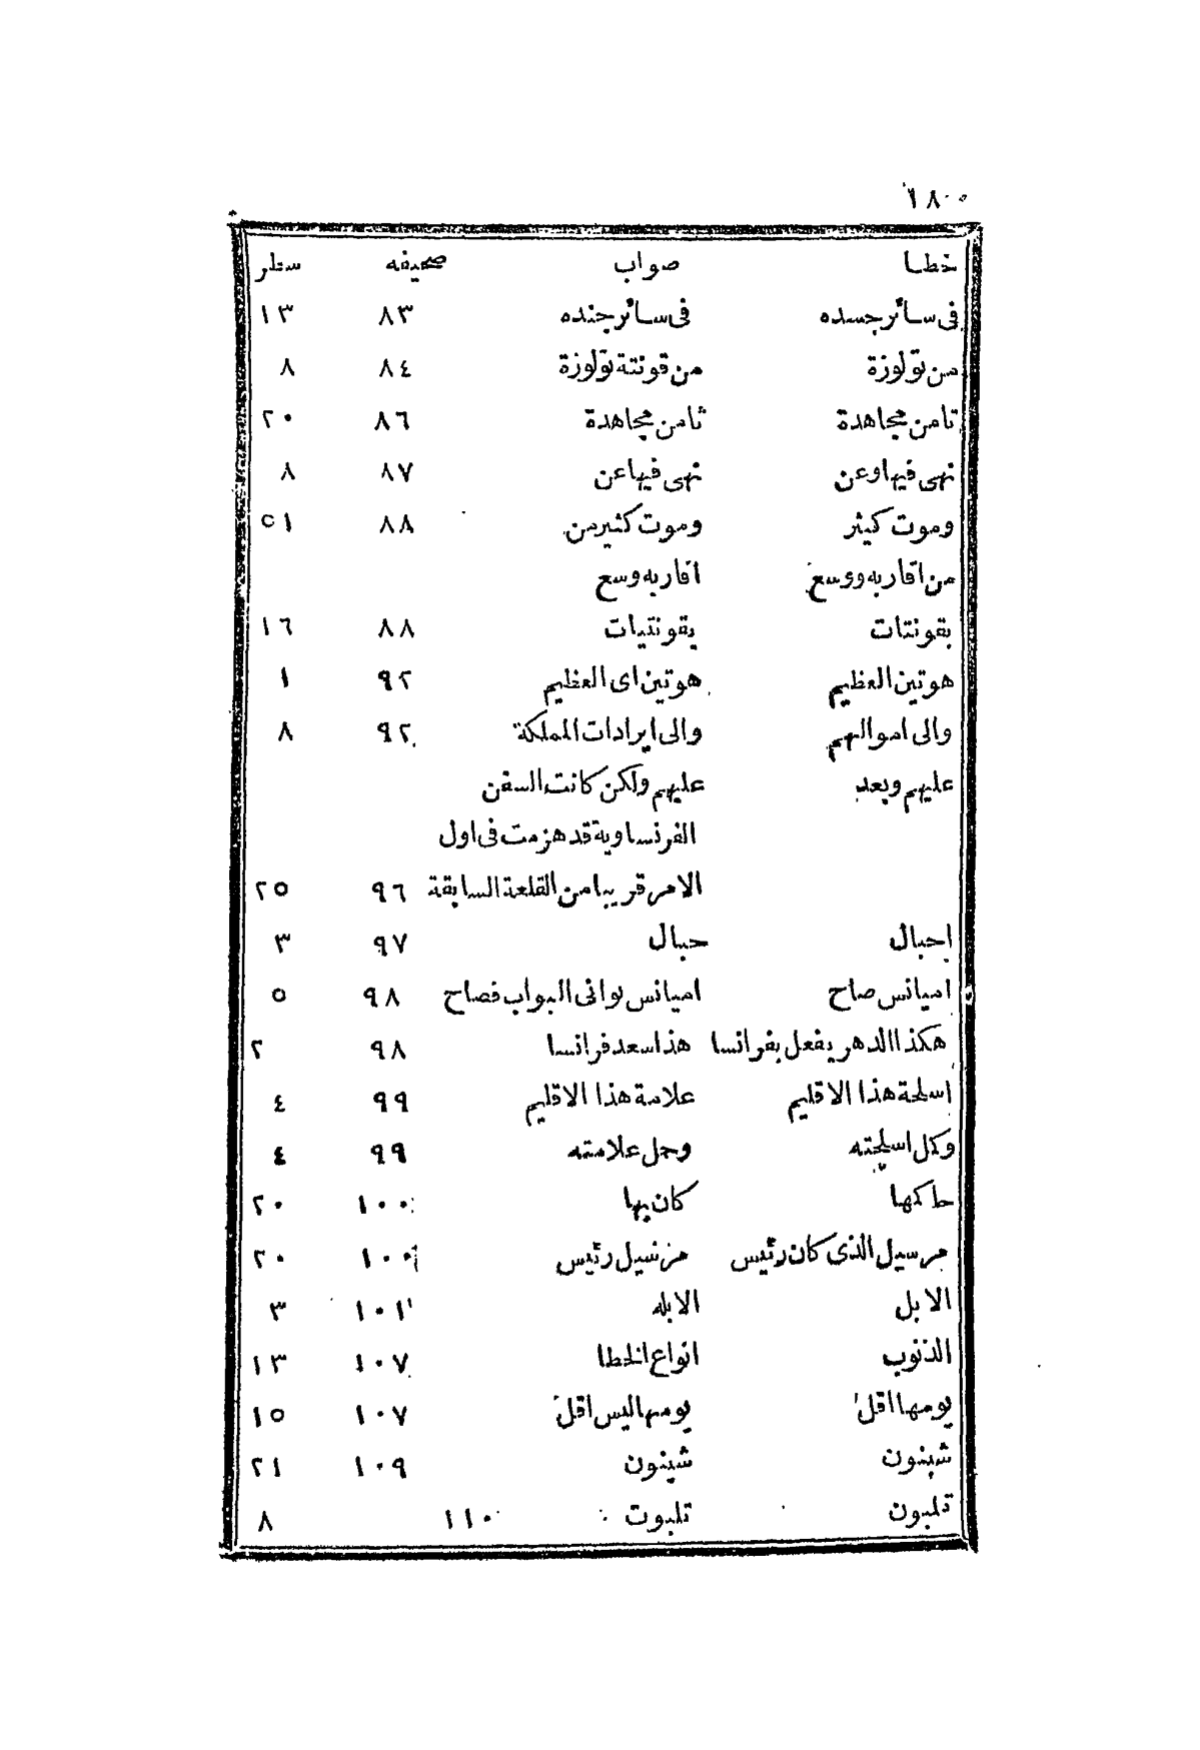 ١٨٠
خطا صواب صحيفه سطر
فى سائر جسده فى سائر جنده ٨٣ ١٣
من تولوزة من قونتة تولوزة ٨٤ ٨
تامن مجاهدة ثامن مجاهدة ٨٦ ٢٠
نهى فيها وعن نهى فيها عن ٨٧ ٨
وموت كيثر وموت كثير من ٨٨ ١٥
من اقاربه ووسع اقاربه وسع
بقونتات بقونتيات ٨٨ ١٦
هوتين العظيم هوتين اى العظيم ٩٢ ١
والى اموالهم والى ايرادات المملكة ٩٢ ٨
عليهم وبعد عليهم ولكن كانت السفن
الفرنساوية قد هزمت فى اول
الامر قريبا من القلعة السابقة ٩٦ ٢٥
احبال حبال ٩٧ ٣
اميانس صاح اميانس نوانى البواب فصاح ٩٨ ٥
هكذا الدهر يفعل بفرانسا هذا سعد فرانسا ٩٨ ٢
اسلحة هذا الاقليم علامة هذا الاقليم ٩٩ ٤
وكل اسلحته وحمل علامته ٩٩ ٤
حاكمها كان بها ١٠٠ ٢٠
مرسيل الذى كان رئيس مرنسيل رئيس ١٠٠ ٢٠
الابل الابله ١٠١ ٣
الذنوب انواع الخطا ١٠٧ ١٣
يومها اقل يومها ليس اقل ١٠٧ ١٥
شبنون شينون ١٠٩ ٢١
تلمبون تلبوت ١١٠ ٨